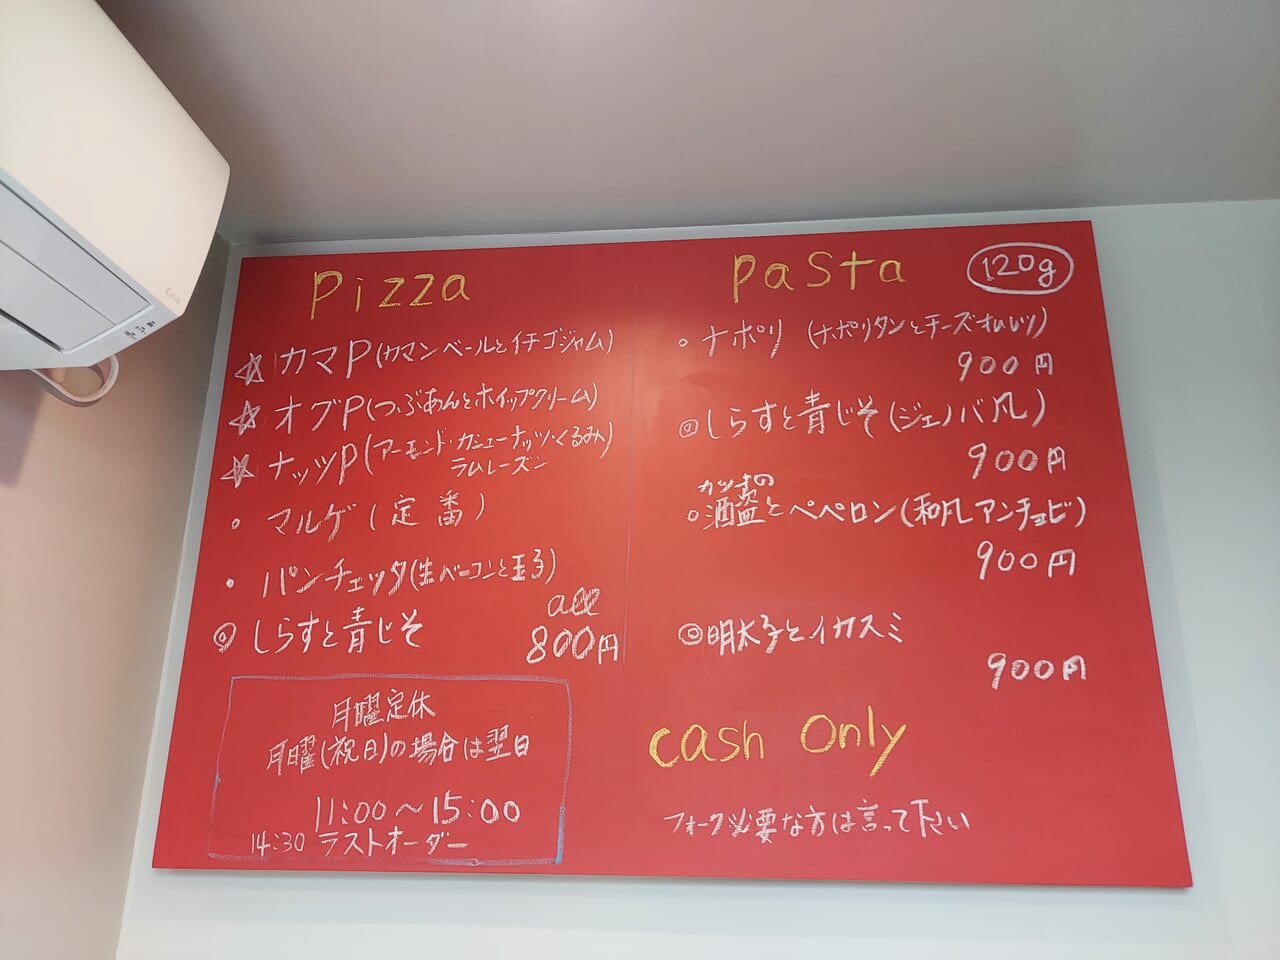 Pizza
☆ カマP(カマンベールとイチゴジャム)
☆ オグP(つぶあんとホイップクリーム)
☆ ナッツP(アーモンド・カシューナッツ・くるみ
ラムレーズン)
○ マルゲ(定番)
・ パンチェッタ(生ベーコンと玉子)
◎ しらすと青じそ
all
800円
月曜定休
月曜(祝日)の場合は翌日
11:00〜15:00
14:30 ラストオーダー
Pasta 120g
○ ナポリ (ナポリタンとチーズオムレツ)
900円
◎しらすと青じそ(ジェノバ風)
900円
カツオの
○酒盗とペペロン(和風アンチョビ)
900円
◎明太子とイカスミ
900円
Cash Only
フォーク必要な方は言って下さい
Eolia